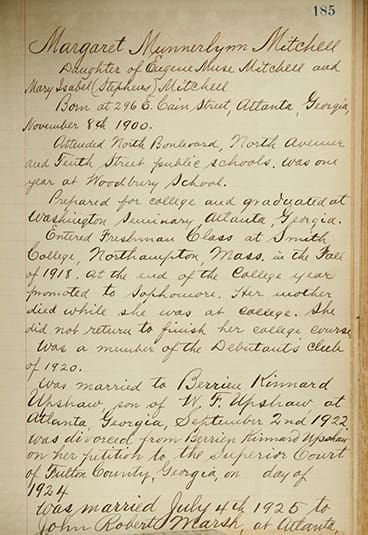 185
Margaret Munnerlynn Mitchell
Daughter of Eugene Muse Mitchell and
Mary Isabel (Stephens) Mitchell
Born at 296 E. Cain Street, Atlanta, Georgia,
November 8th 1900.
Attended North Boulevard, North Avenue
and Tenth Street public schools. Was one
year at Woodbury School.
Prepared for college and graduated at
Washington Seminary Atlanta, Georgia.
Entered Freshman Class at Smith
College, Northampton, Mass. in the Fall
of 1918. At the end of the College year
promoted to Sophomore. Her mother
died while she was at college. She
did not return to finish her college course.
Was a member of the Debutants Club
of 1920.
Was married to Berrien Kinnard
Upshaw son of W. F. Upshaw at
Atlanta, Georgia, September 2nd 1922
was divorced from Berrien Kinnard Upshaw
on her petition to the Superior Court
of Fulton County, Georgia, on day of
1924
Was married July 4th 1925 to
John Robert Marsh, at Atlanta,